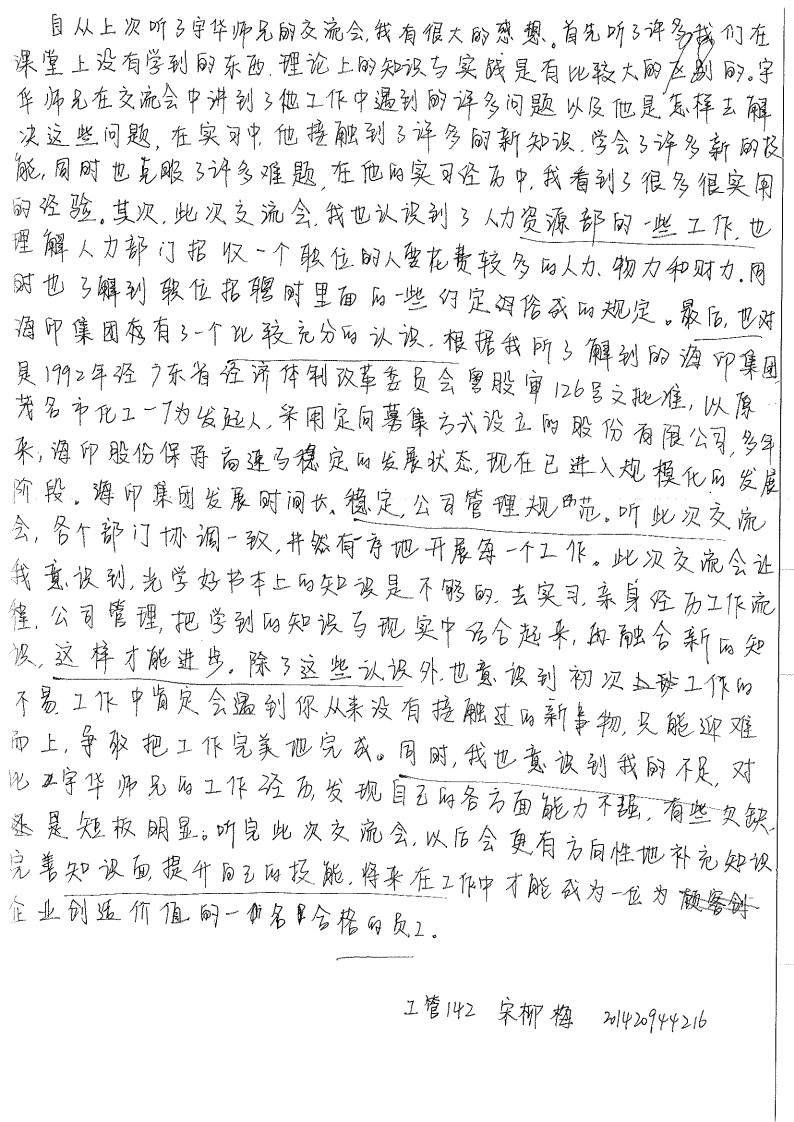 自从上次听了宇华师兄的交流会,我有很大的感想。首先听了许多我们在
课堂上没有学到的东西,理论上的知识与实战是有比较大的区别的。宇
华师兄在交流会中讲到了他工作中遇到的许多问题以及他是怎样去解
决这些问题,在实习中,他接触到了许多的新知识,学会了许多新的技
能,同时也克服了许多难题,在他的实习经历中,我看到了很多很实用
的经验。其次,此次交流会,我也认识到了人力资源部的一些工作,也
理解人力部门招收一个职位的人要花费较多的人力、物力和财力。同
时也了解到职位招聘时里面的一些约定俗成的规定。最后,也对
海印集团有了一个比较充分的认识,根据我所了解到的海印集团
是1992年经广东省经济体制改革委员会粤股审126号文批准,以原
茂名市化工一厂为发起人,采用定向募集方式设立的股份有限公司,多年
来,海印股份保持高速与稳定的发展状态,现在已进入规模化的发展
阶段。海印集团发展时间长,稳定,公司管理规范。听此次交流
会,各个部门协调一致,井然有序地开展每一个工作。此次交流会让
我意识到,光学好书本上的知识是不够的,去实习,亲身经历工作流
程,公司管理,把学到的知识与现实中结合起来,再融合新的知
识,这样才能进步。除了这些认识外,也意识到初次工作的
不易,工作中肯定会遇到你从来没有接触过的新事物,只能迎难
而上,争取把工作完美地完成。同时,我也意识到我的不足,对
比宇华师兄的工作经历,发现自己的各方面能力不强,有些欠缺,
还是短板明显。听完此次交流会,以后会更有方向性地补充知识
完善知识面,提升自己的技能,将来在工作中才能成为一位为
企业创造价值的一名合格的员工。
工管142 宋柳梅 201420944216